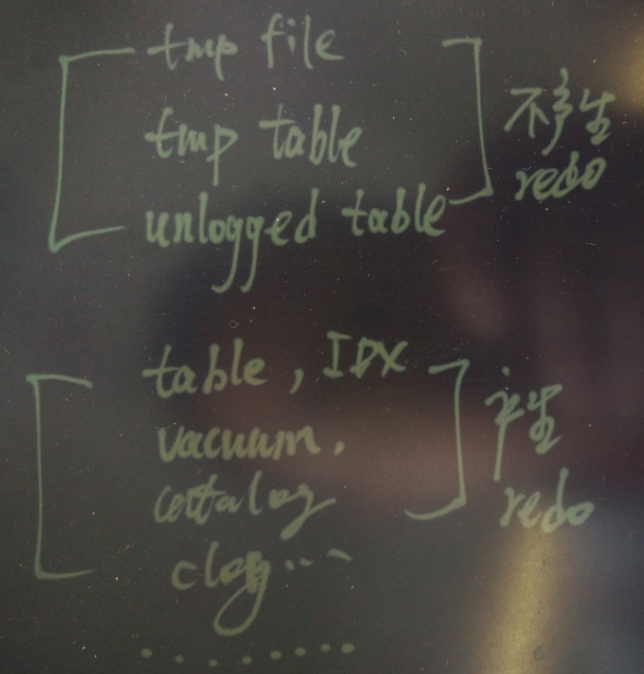 tmp file
tmp table
unlogged table
不产生
redo
table, IDX
vacuum.
catalog
clog...
产生
redo
........